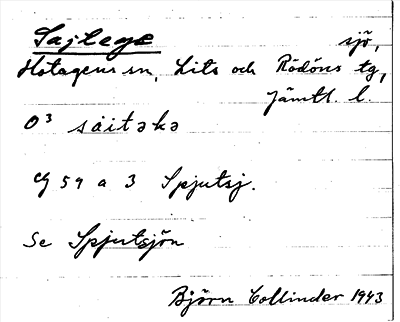 Sajtege sjö,
Hotagens sn, Lits och Rödöns tg,
Jämtl. l.
O³ sáitəkə
cg 59 a 3 Spjutsj.
Se Spjutsjön
Björn Collinder 1943